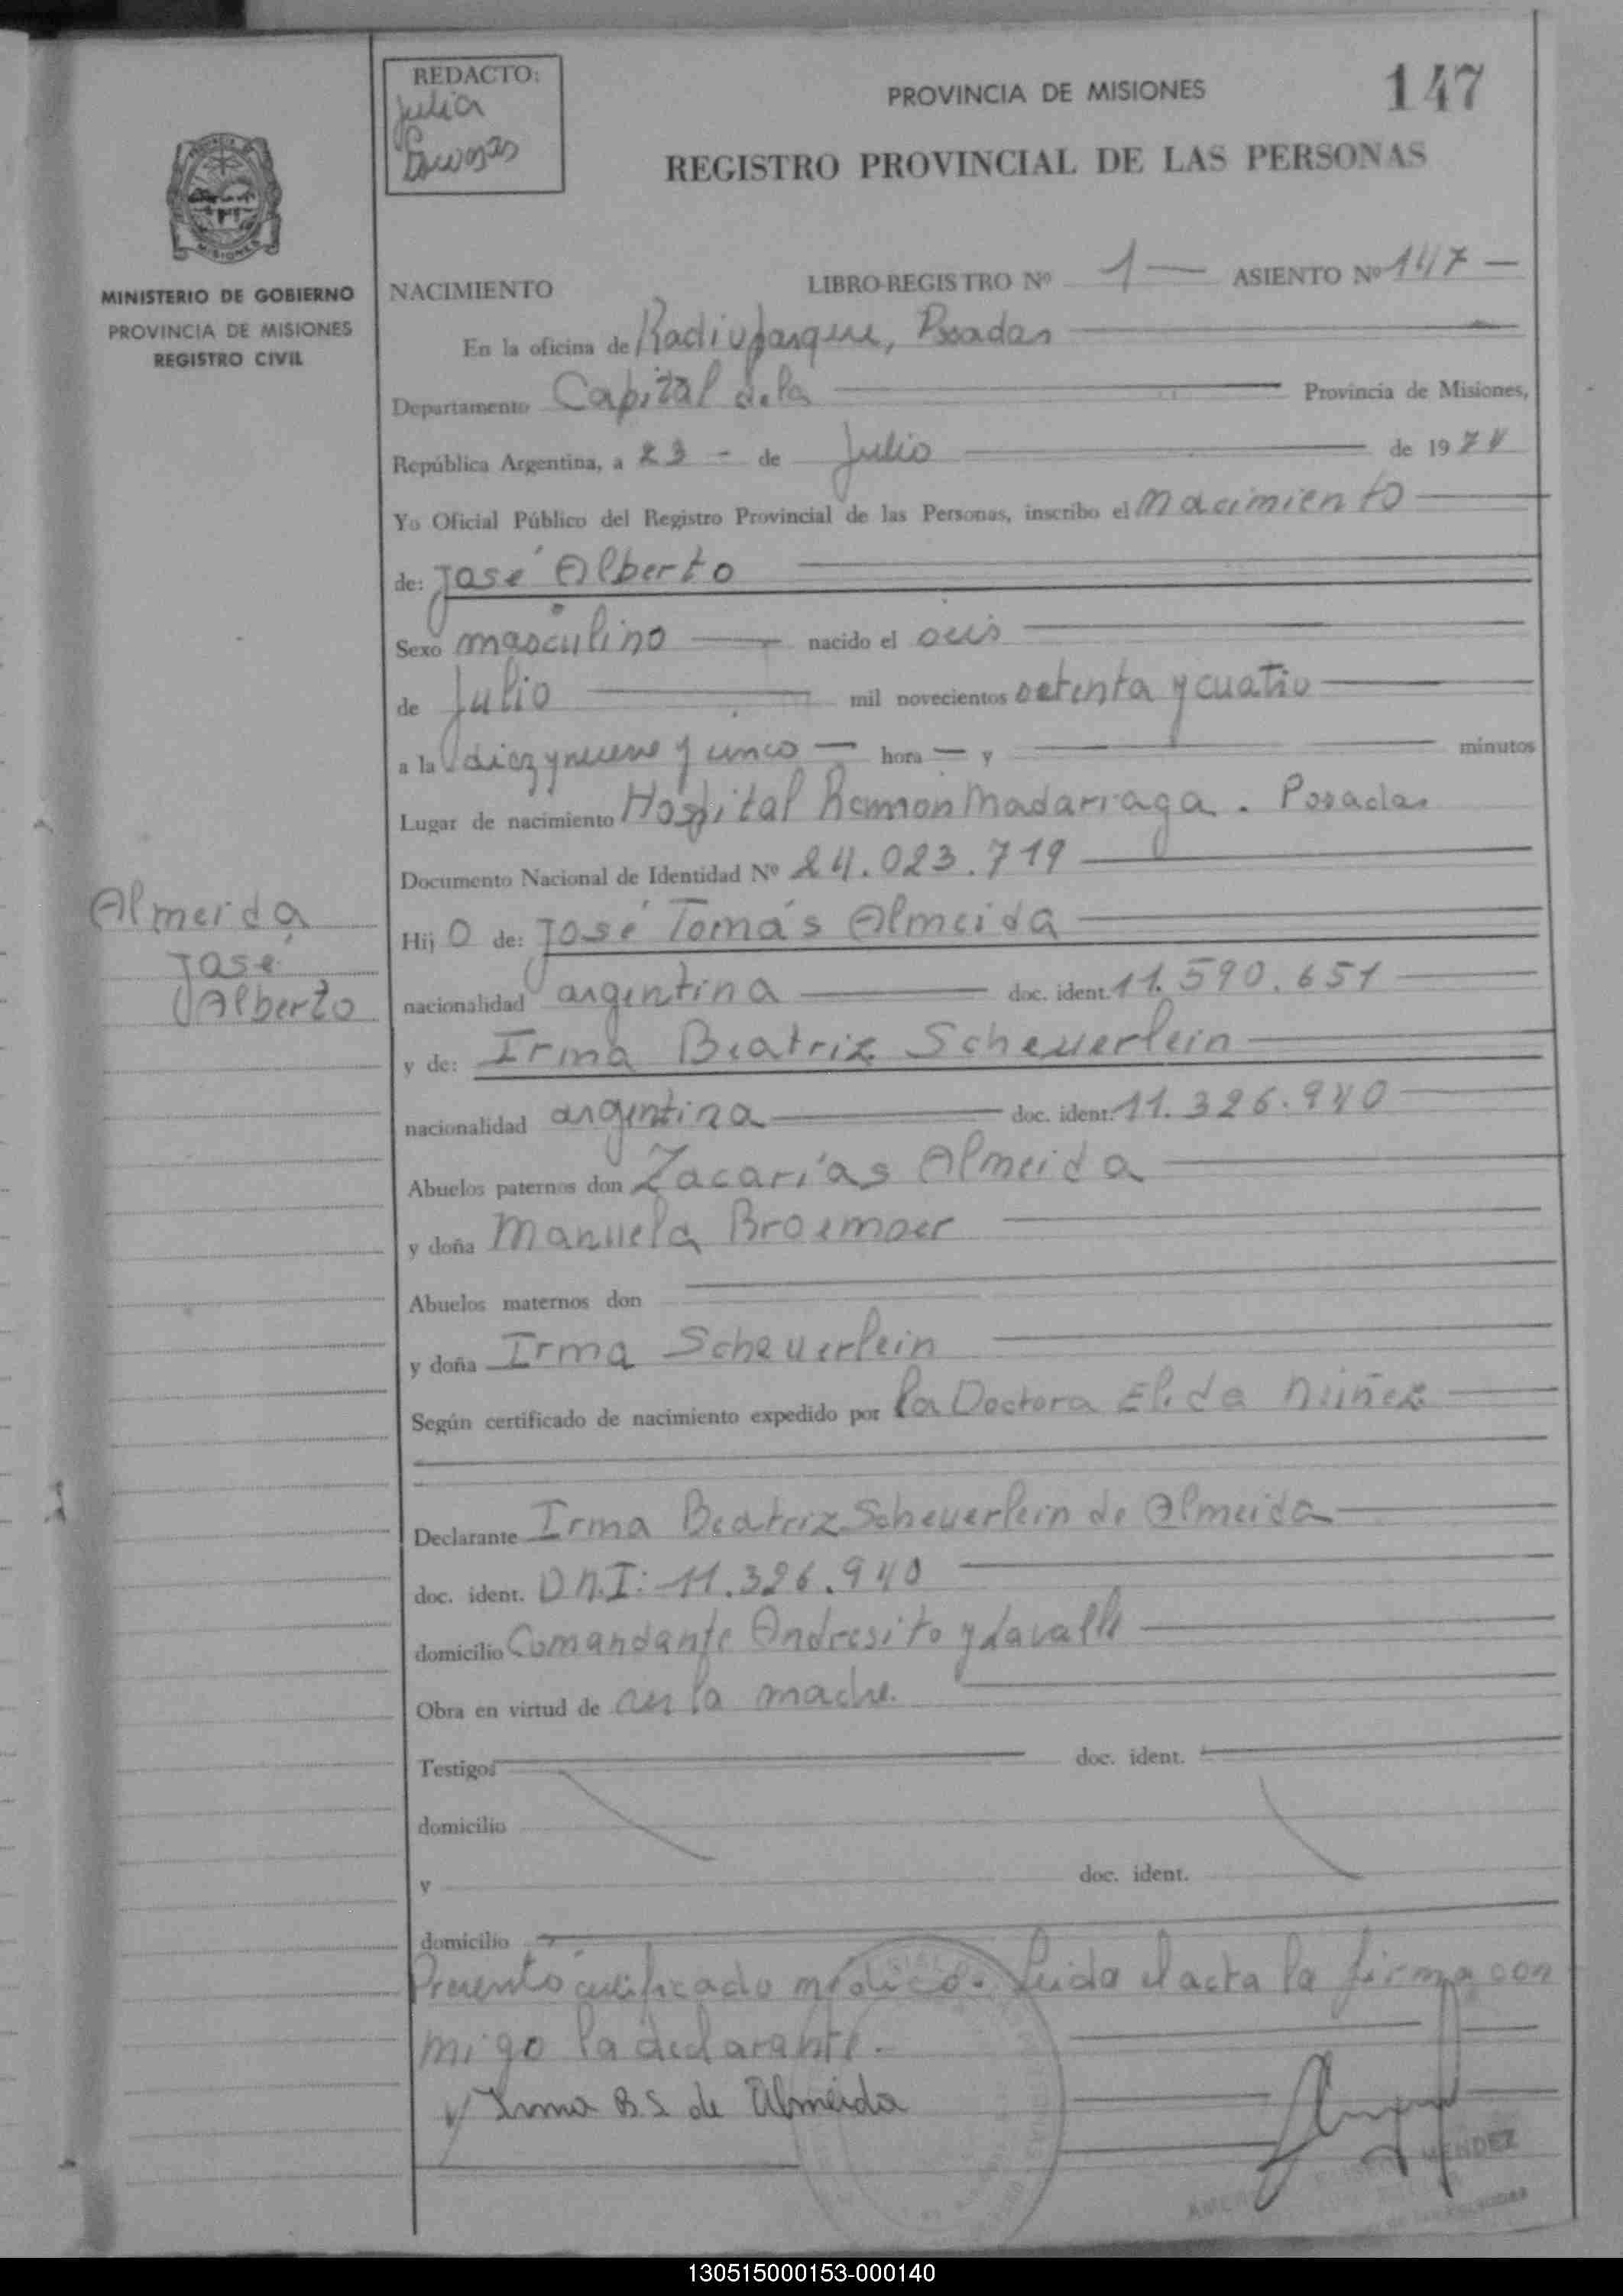 REDACTO:
Julia
PROVINCIA DE MISIONES
147
REGISTRO PROVINCIAL DE LAS PERSONAS
MISIONES
MINISTERIO DE GOBIERNO
PROVINCIA DE MISIONES
REGISTRO CIVIL
NACIMIENTO LIBRO-REGISTRO Nº 1 — ASIENTO Nº 147 —
En la oficina de Radioparque, Posadas
Departamento Capital de la Provincia de Misiones,
República Argentina, a 23 - de Julio de 1974
Yo Oficial Público del Registro Provincial de las Personas, inscribo el nacimiento
de: José Alberto
Sexo masculino nacido el seis
de Julio mil novecientos setenta y cuatro
a la diez y nueve y cinco — hora — y minutos
Lugar de nacimiento Hospital Ramon Madarriaga. Posadas
Documento Nacional de Identidad Nº 24.023.719
Almeida
José
Alberto
Hij o de: José Tomás Almeida
nacionalidad argentina doc. ident. 11.590.651
y de: Irma Beatriz Scheuerlein
nacionalidad argentina doc. ident. 11.326.940
Abuelos paternos don Zacarías Almeida
y doña Manuela
Abuelos maternos don
y doña Irma Scheuerlein
Según certificado de nacimiento expedido por la Doctora Elida Núñez
Declarante Irma Beatriz Scheuerlein de Almeida
doc. ident. D.N.I: 11.326.940
domicilio Comandante Andresito y Lavalle
Obra en virtud de ser la madre.
Testigos doc. ident.
domicilio
y doc. ident.
domicilio
Presentó certificado médico. Leida el acta la firma con
migo la declarante.
Irma B. S. de Almeida
MENDEZ
130515000153-000140